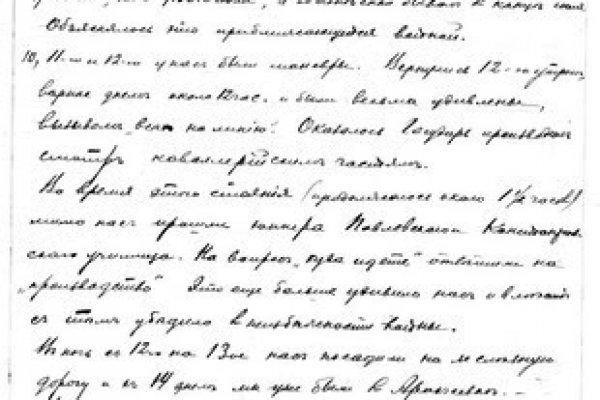 Объяснялось это приближающейся войной.
10, 11-го и 12-го у нас были маневры. Вернулись 12-го утром,
вернее днем около 12 час. и были весьма удивлены,
вызовом „всех на линию“. Оказалось Государь производил
смотр кавалерийским частям.
Во время этого стояния (продолжалось около 1½ часов)
мимо нас прошли юнкера Павловского
училища. На вопрос „куда идете“ ответили на
„производство“ Это еще больше удивило нас и
с тем убедило в неизбежности войны.
В ночь с 12го на 13ое нас посадили на железную
дорогу и в 14 днем мы уже были в